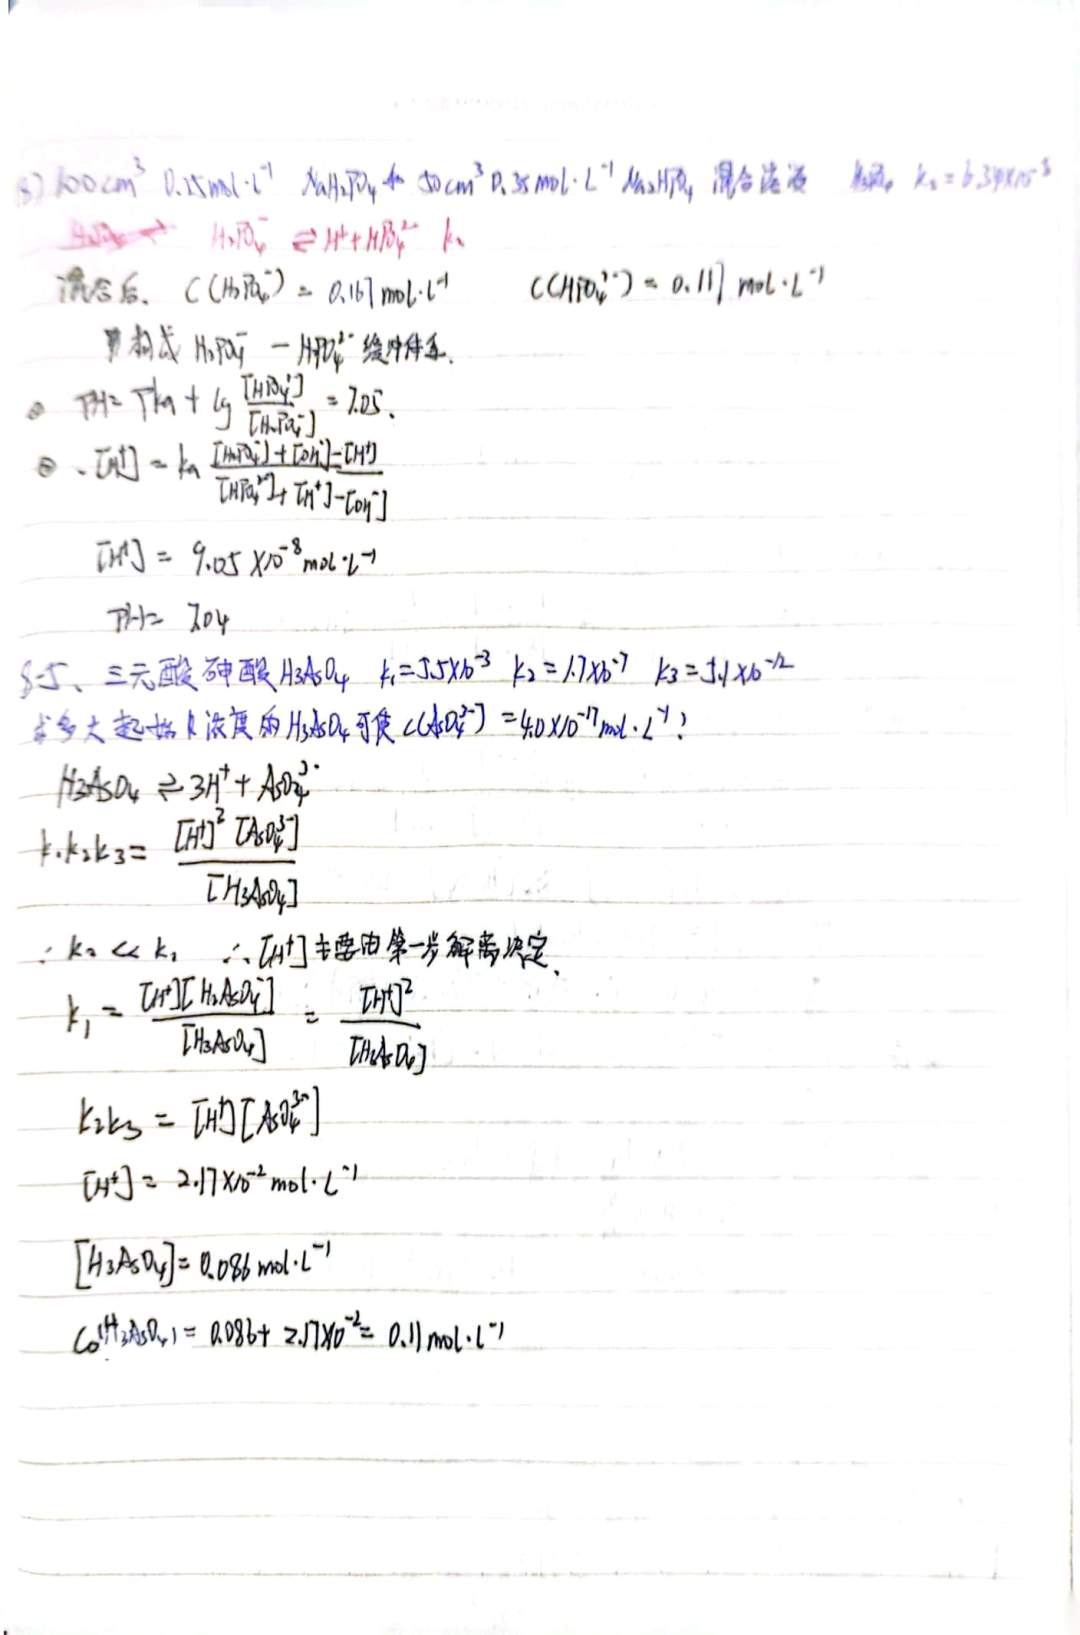 (3) 100cm³ 0.25mol·L⁻¹ NaH₂PO₄ 和 50cm³ 0.35mol·L⁻¹ Na₂HPO₄ 混合溶液 k₂=6.34×10⁻⁸
H₂PO₄⁻ ⇌ H⁺+HPO₄²⁻ k₂
混合后、C(H₂PO₄⁻) = 0.167mol·L⁻¹ C(HPO₄²⁻) = 0.117 mol·L⁻¹
构成 H₂PO₄⁻ — HPO₄²⁻ 缓冲体系.
① PH= Pka + lg [HPO₄²⁻]/[H₂PO₄⁻] = 7.05.
② [H⁺] = ka ([H₂PO₄⁻]+[OH⁻]-[H⁺])/([HPO₄²⁻]+[H⁺]-[OH⁻])
[H⁺] = 9.05×10⁻⁸mol·L⁻¹
PH= 7.04
8-5、三元酸砷酸H₃AsO₄ k₁=5.5×10⁻³ k₂=1.7×10⁻⁷ k₃=5.1×10⁻¹²
求多大起始浓度的H₃AsO₄可使c(AsO₄³⁻)=4.0×10⁻¹⁷mol·L⁻¹?
H₃AsO₄ ⇌ 3H⁺+ AsO₄³⁻
k₁k₂k₃= [H⁺]² [AsO₄³⁻]/[H₃AsO₄]
∵ k₂ << k₁ ∴ [H⁺]主要由第一步解离决定.
k₁ = [H⁺][H₂AsO₄⁻]/[H₃AsO₄] = [H⁺]²/[H₃AsO₄]
k₂k₃ = [H⁺][AsO₄³⁻]
[H⁺] = 2.17×10⁻²mol·L⁻¹
[H₃AsO₄]=0.086mol·L⁻¹
C₀(H₃AsO₄)= 0.086+ 2.17×10⁻²= 0.11mol·L⁻¹